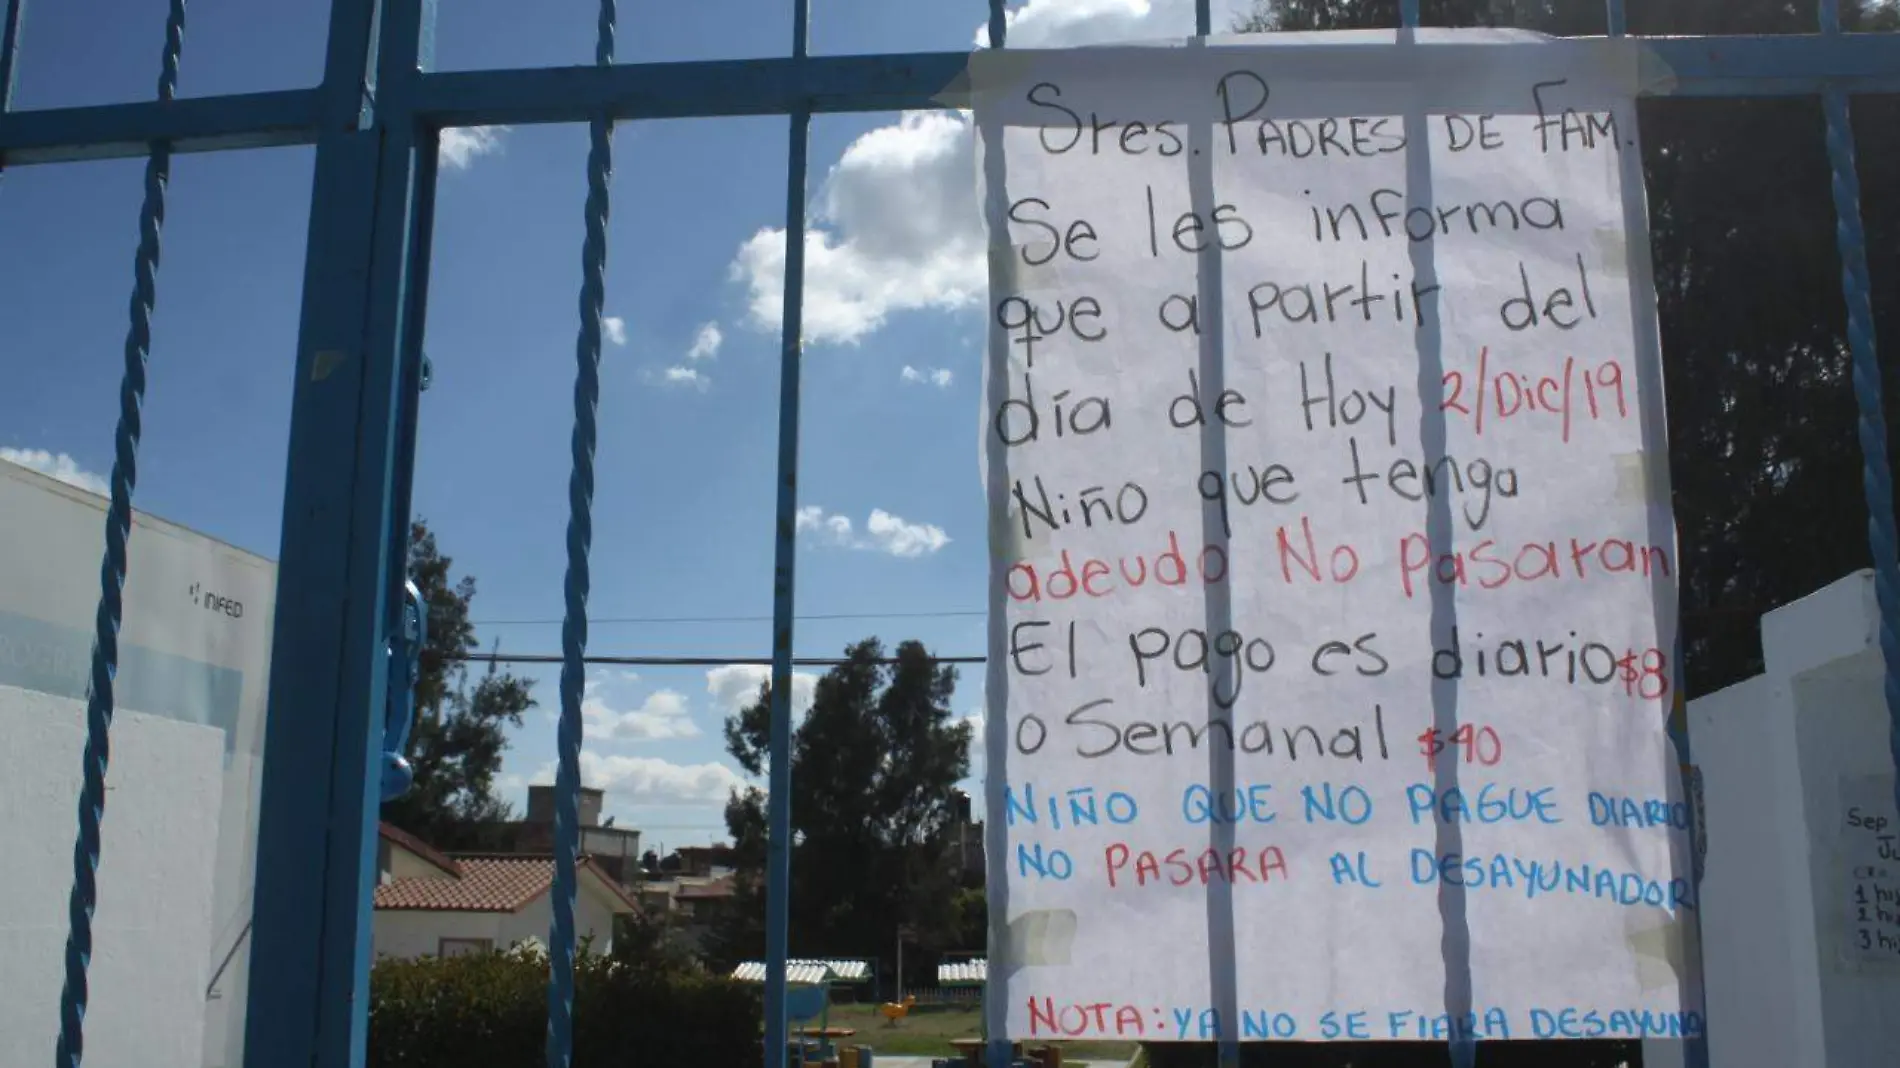 Sres. PADRES DE FAM.
Se les informa
que a partir del
día de Hoy 2/Dic/19
Niño que tenga
adeudo No Pasaran
El pago es diario $8
o Semanal $40
NIÑO QUE NO PAGUE DIARIO
NO PASARA AL DESAYUNADOR
NOTA: YA NO SE FIARA DESAYUNO
INIFED
Sep
1 hi
2 hi
3 hi